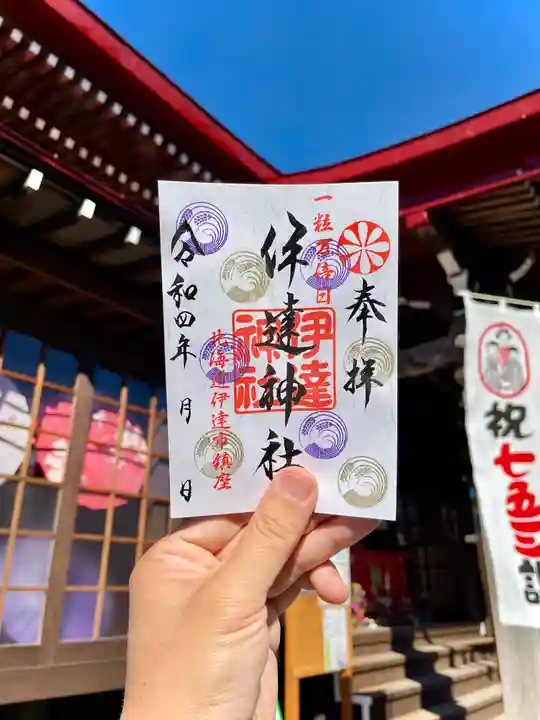 奉拝
一粒万倍日
伊達神社
伊達
神社
北海道伊達市鎮座
令和四年 月 日
祝
七五三詣